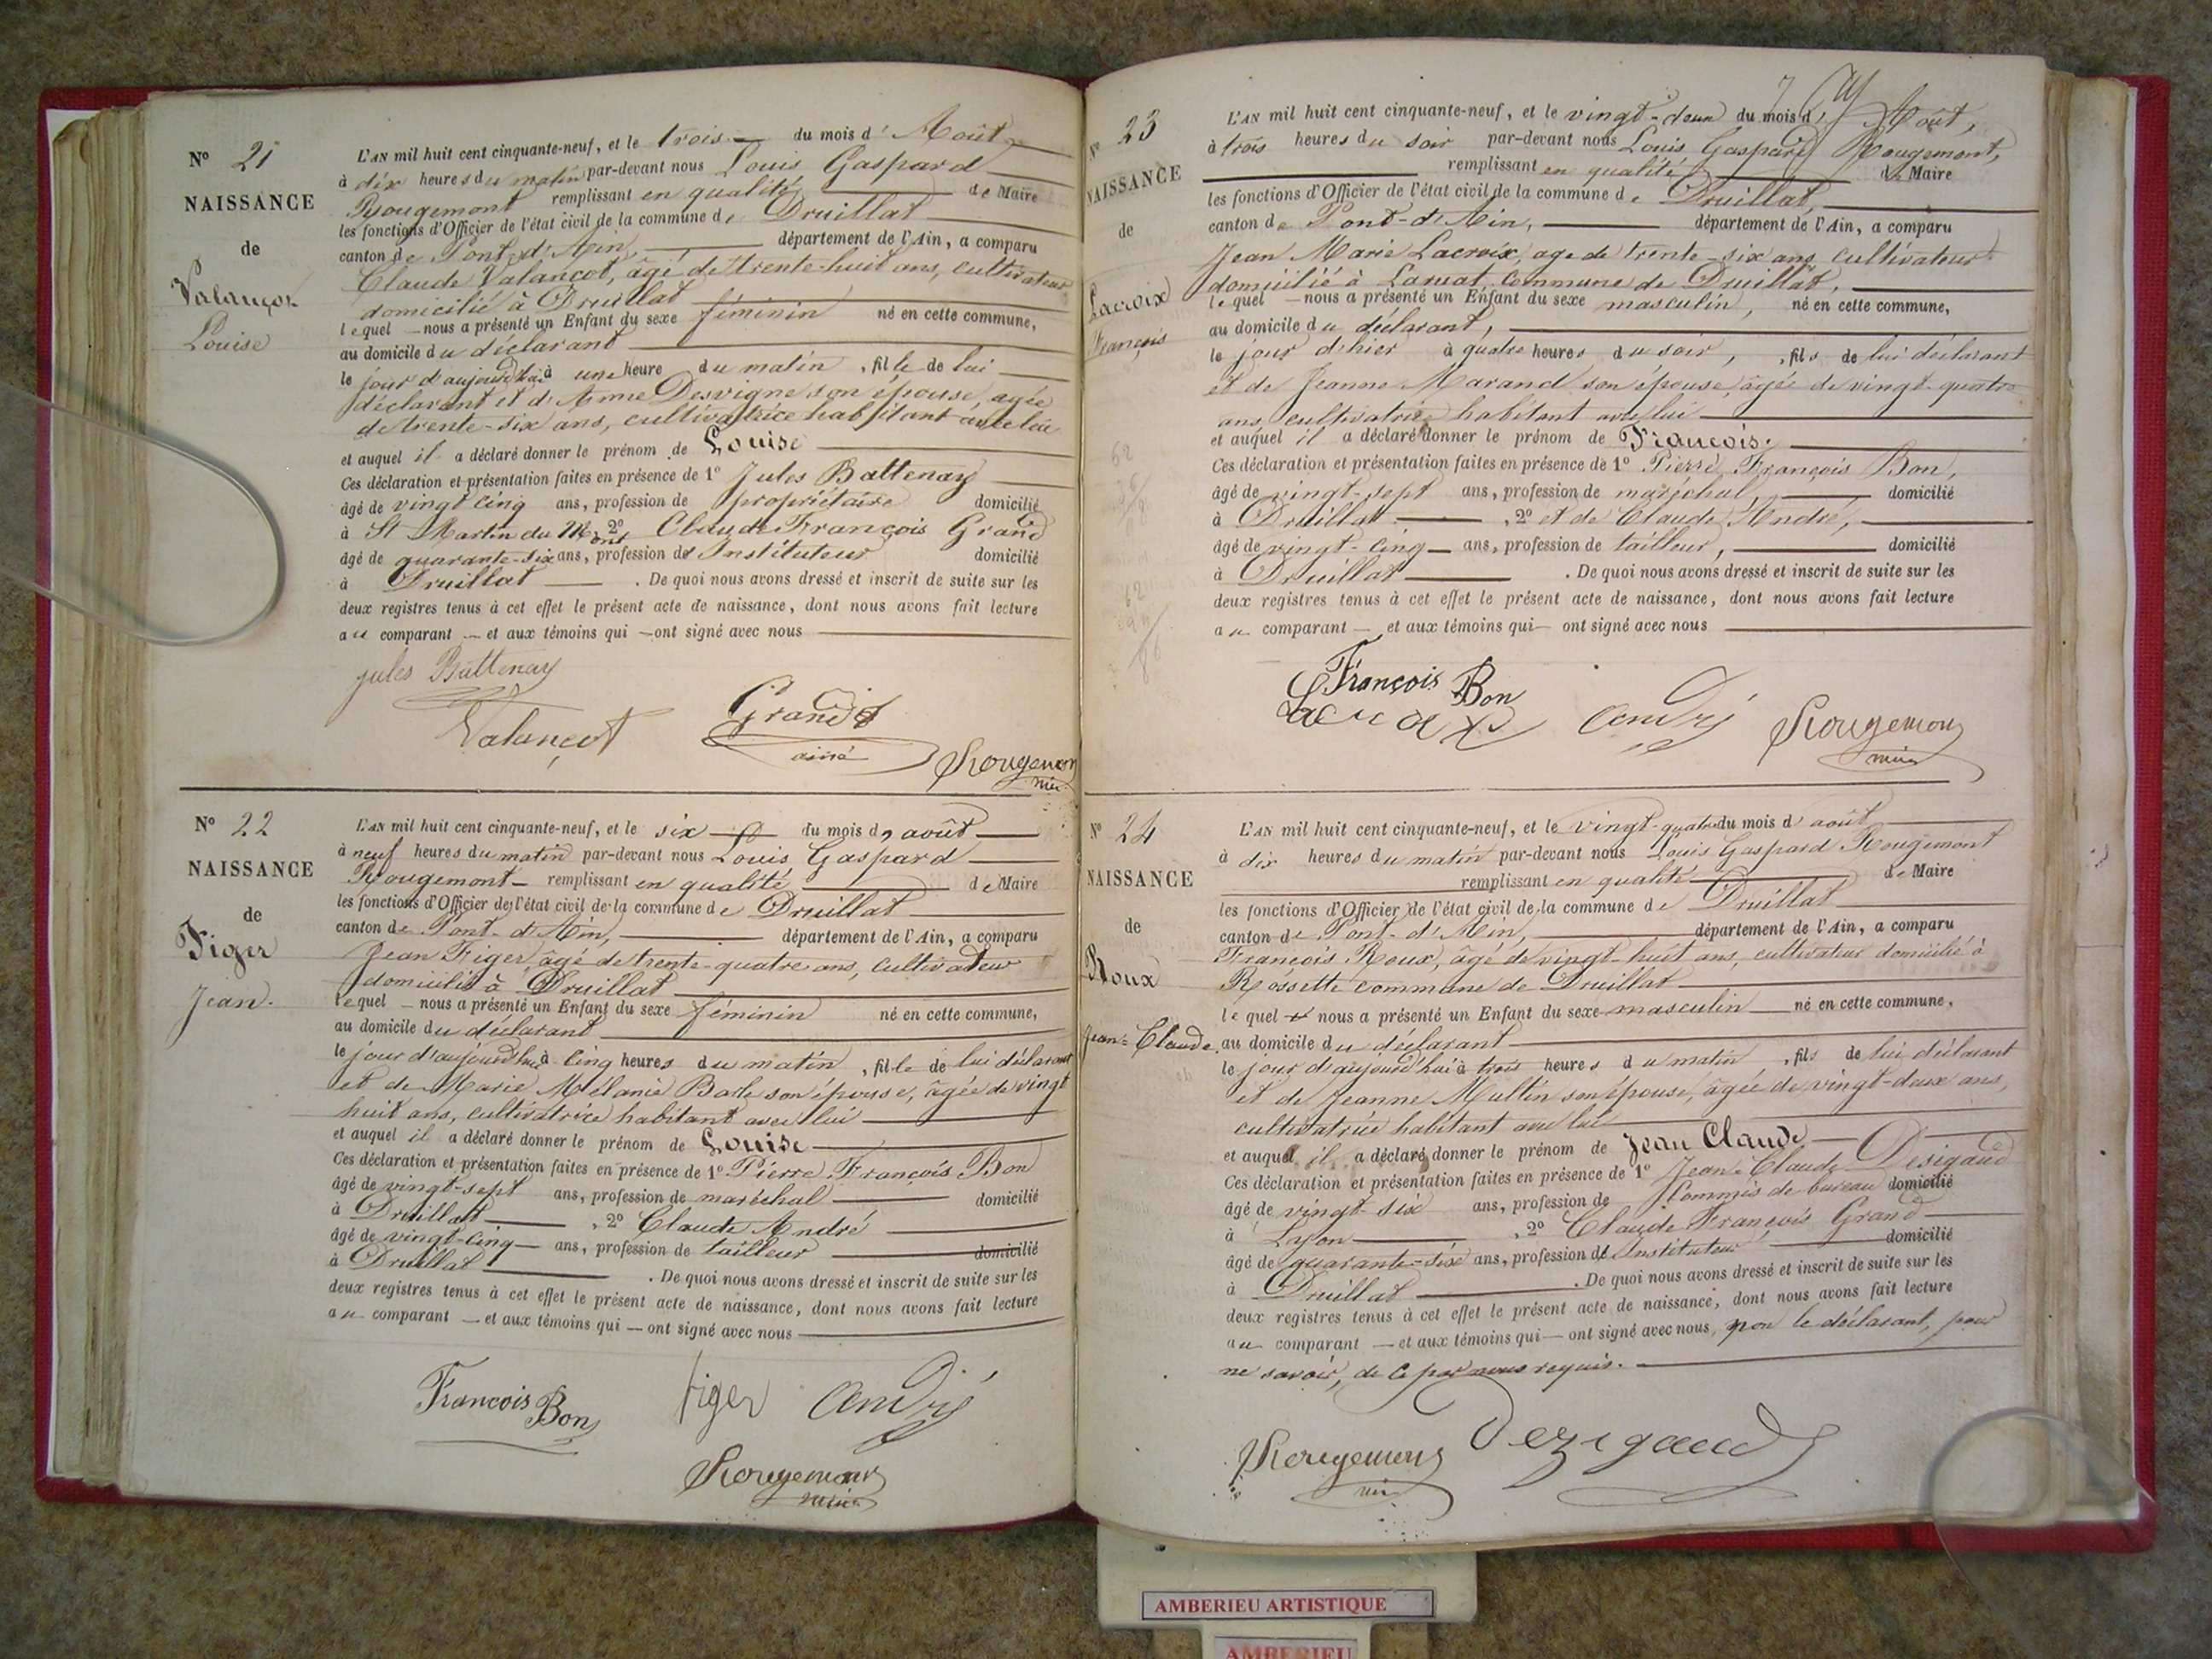 N° 21
NAISSANCE
de
Valançot
Louise
L'AN mil huit cent cinquante-neuf, et le trois — du mois d' Août
à dix heures du matin par-devant nous Louis Gaspard
Rougemont remplissant en qualité de Maire
les fonctions d'Officier de l'état civil de la commune de Druillat
canton de Pont-d'Ain, département de l'Ain, a comparu
Claude Valançot, âgé de trente-huit ans, cultivateur
domicilié à Druillat
lequel nous a présenté un Enfant du sexe féminin né en cette commune,
au domicile du déclarant
le jour d'aujourd'hui à une heure du matin, fille de lui
déclarant et d'Anne Desvigne son épouse, agée
de trente-six ans, cultivatrice habitant avec lui
et auquel il a déclaré donner le prénom de Louise
Ces déclaration et présentation faites en présence de 1° Jules Battenay
âgé de vingt cinq ans, profession de propriétaire domicilié
à St Martin du Mont 2° Claude François Grand
âgé de quarante-six ans, profession d'Instituteur domicilié
à Druillat. De quoi nous avons dressé et inscrit de suite sur les
deux registres tenus à cet effet le présent acte de naissance, dont nous avons fait lecture
au comparant — et aux témoins qui — ont signé avec nous
jules Battenay
Valançot
Grand
ainé
Rougemont
N° 22
NAISSANCE
de
Figer
Jean.
L'AN mil huit cent cinquante-neuf, et le six du mois d' août
à neuf heures du matin par-devant nous Louis Gaspard
Rougemont remplissant en qualité de Maire
les fonctions d'Officier de l'état civil de la commune de Druillat
canton de Pont-d'Ain, département de l'Ain, a comparu
Jean Figer âgé de trente-quatre ans, cultivateur
domicilié à Druillat
lequel nous a présenté un Enfant du sexe féminin né en cette commune,
au domicile du déclarant
le jour d'aujourd'hui à cinq heures du matin, fille de lui déclarant
et de Marie Mélanie son épouse, âgée de vingt
huit ans, cultivatrice habitant avec lui
et auquel il a déclaré donner le prénom de Louise
Ces déclaration et présentation faites en présence de 1° Pierre François Bon
âgé de vingt-sept ans, profession de maréchal domicilié
à Druillat, 2° Claude André
âgé de vingt-cinq ans, profession de tailleur domicilié
à Druillat. De quoi nous avons dressé et inscrit de suite sur les
deux registres tenus à cet effet le présent acte de naissance, dont nous avons fait lecture
au comparant — et aux témoins qui — ont signé avec nous
François Bon
figer
andré
Rougemont
N° 23
NAISSANCE
de
Lacroix
François
L'AN mil huit cent cinquante-neuf, et le vingt-deux du mois d' Août,
à trois heures du soir par-devant nous Louis Gaspard Rougemont,
remplissant en qualité de Maire
les fonctions d'Officier de l'état civil de la commune de Druillat,
canton de Pont-d'Ain, département de l'Ain, a comparu
Jean Marie Lacroix, age de trente-six ans, cultivateur
domicilié à commune de Druillat,
lequel — nous a présenté un Enfant du sexe masculin, né en cette commune,
au domicile du déclarant,
le jour d'hier à quatre heures du soir, fils de lui déclarant
et de Jeanne Marand son épouse, âgée de vingt-quatre
ans, cultivatrice habitant avec lui
et auquel il a déclaré donner le prénom de François.
Ces déclaration et présentation faites en présence de 1° Pierre François Bon,
âgé de vingt-sept ans, profession de maréchal, domicilié
à Druillat, 2° et de Claude André,
âgé de vingt-cinq ans, profession de tailleur, domicilié
à Druillat. De quoi nous avons dressé et inscrit de suite sur les
deux registres tenus à cet effet le présent acte de naissance, dont nous avons fait lecture
au comparant — et aux témoins qui — ont signé avec nous
François Bon
Lacroix
andré
Rougemont
N° 24
NAISSANCE
de
Roux
Jean-Claude
L'AN mil huit cent cinquante-neuf, et le vingt-quatre du mois d' août
à dix heures du matin par-devant nous Louis Gaspard Rougemont
remplissant en qualité de Maire
les fonctions d'Officier de l'état civil de la commune de Druillat
canton de Pont-d'Ain, département de l'Ain, a comparu
François Roux, âgé de vingt-huit ans, cultivateur domicilié à
Rossette commune de Druillat
lequel nous a présenté un Enfant du sexe masculin né en cette commune,
au domicile du déclarant
le jour d'aujourd'hui à trois heures du matin, fils de lui déclarant
et de Jeanne Multin son épouse, âgée de vingt-deux ans,
cultivatrice habitant avec lui
et auquel il a déclaré donner le prénom de Jean Claude
Ces déclaration et présentation faites en présence de 1° Jean-Claude Desigaud
âgé de vingt-six ans, profession de Commis de bureau domicilié
à Lyon, 2° Claude François Grand
âgé de quarante-six ans, profession d'Instituteur domicilié
à Druillat. De quoi nous avons dressé et inscrit de suite sur les
deux registres tenus à cet effet le présent acte de naissance, dont nous avons fait lecture
au comparant — et aux témoins qui — ont signé avec nous, non le déclarant, pour
ne savoir, de ce par nous requis.
Rougemont
Dezigaud
AMBERIEU ARTISTIQUE
AMBERIEU